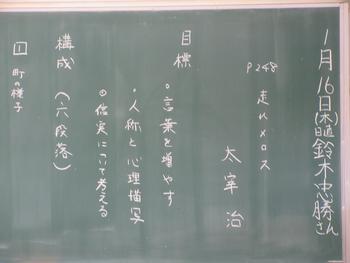 1月16日(木)日直 鈴木忠勝さん
P248 走れメロス
太宰 治
目標
◦言葉を増やす
・人称と心理描写
◎信実について考える
構成(六段落)
1 町の様子